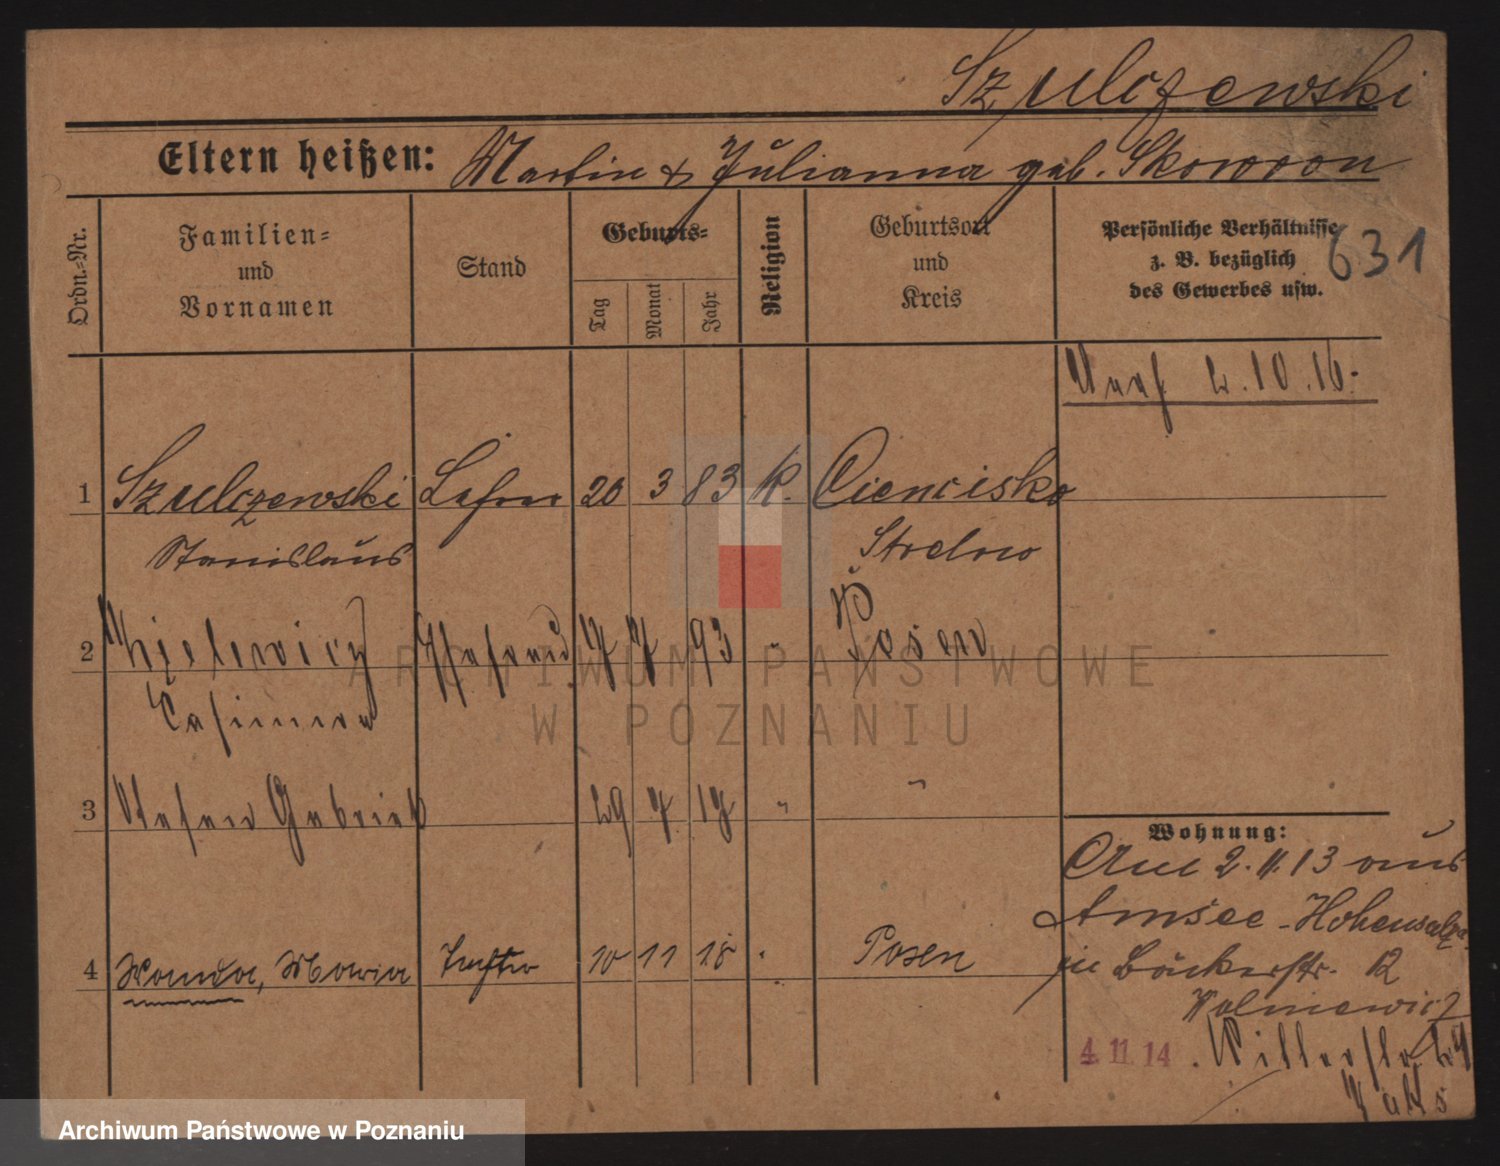 Szulczewski
Eltern heißen: Martin & Julianna geb. Skowron
Ordn.=Nr.
Familien=
und
Vornamen
Stand
Geburts=
Tag
Monat
Jahr
Religion
Geburtsort
und
Kreis
Persönliche Verhältnisse
z. B. bezüglich
des Gewerbes usw.
631
2.10.16.
1 Szulczewski Lehrer 20 3 83 k. Ciencisko
Stanislaus Strelno
2 Ehefrau 93 " Posen
Casimira
3 Stefan Gabriel 29 7 17 " "
Wohnung:
2.11.13 aus
Amsee - Hohensalza
4 Wanda, Maria Tochter 10 11 18 . Posen
in Bäckerstr. 12
Wolniewicz
4.11.14
ARCHIWUM PAŃSTWOWE
W POZNANIU
Archiwum Państwowe w Poznaniu